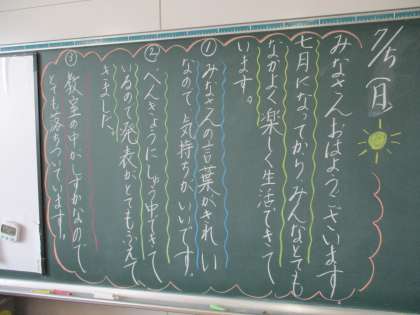 7/5(月)
みなさんおはようございます。
七月になってから、みんなとても
なかよく楽しく生活できて
います。
①みなさんの言葉がきれい
なので気持ちがいいです。
②べんきょうにしゅう中できて
いるので発表がとてもふえて
きました。
③教室の中がしずかなので
とても落ちついています。